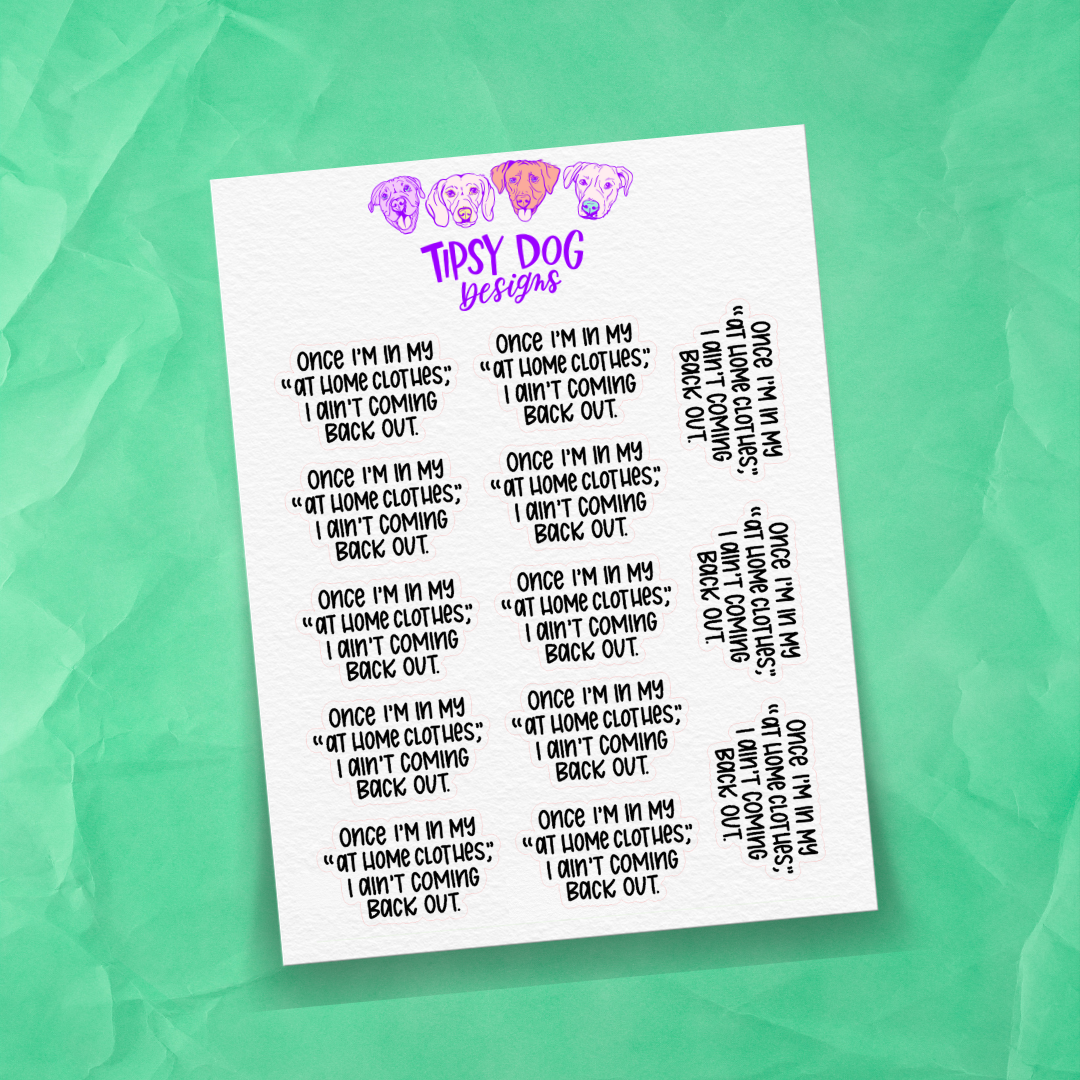 TIPSY DOG
Designs
Once I'm in my
"at home clothes,"
I ain't coming
back out.
Once I'm in my
"at home clothes,"
I ain't coming
back out.
Once I'm in my
"at home clothes,"
I ain't coming
back out.
Once I'm in my
"at home clothes,"
I ain't coming
back out.
Once I'm in my
"at home clothes,"
I ain't coming
back out.
Once I'm in my
"at home clothes,"
I ain't coming
back out.
Once I'm in my
"at home clothes,"
I ain't coming
back out.
Once I'm in my
"at home clothes,"
I ain't coming
back out.
Once I'm in my
"at home clothes,"
I ain't coming
back out.
Once I'm in my
"at home clothes,"
I ain't coming
back out.
Once I'm in my
"at home clothes,"
I ain't coming
back out.
Once I'm in my
"at home clothes,"
I ain't coming
back out.
Once I'm in my
"at home clothes,"
I ain't coming
back out.